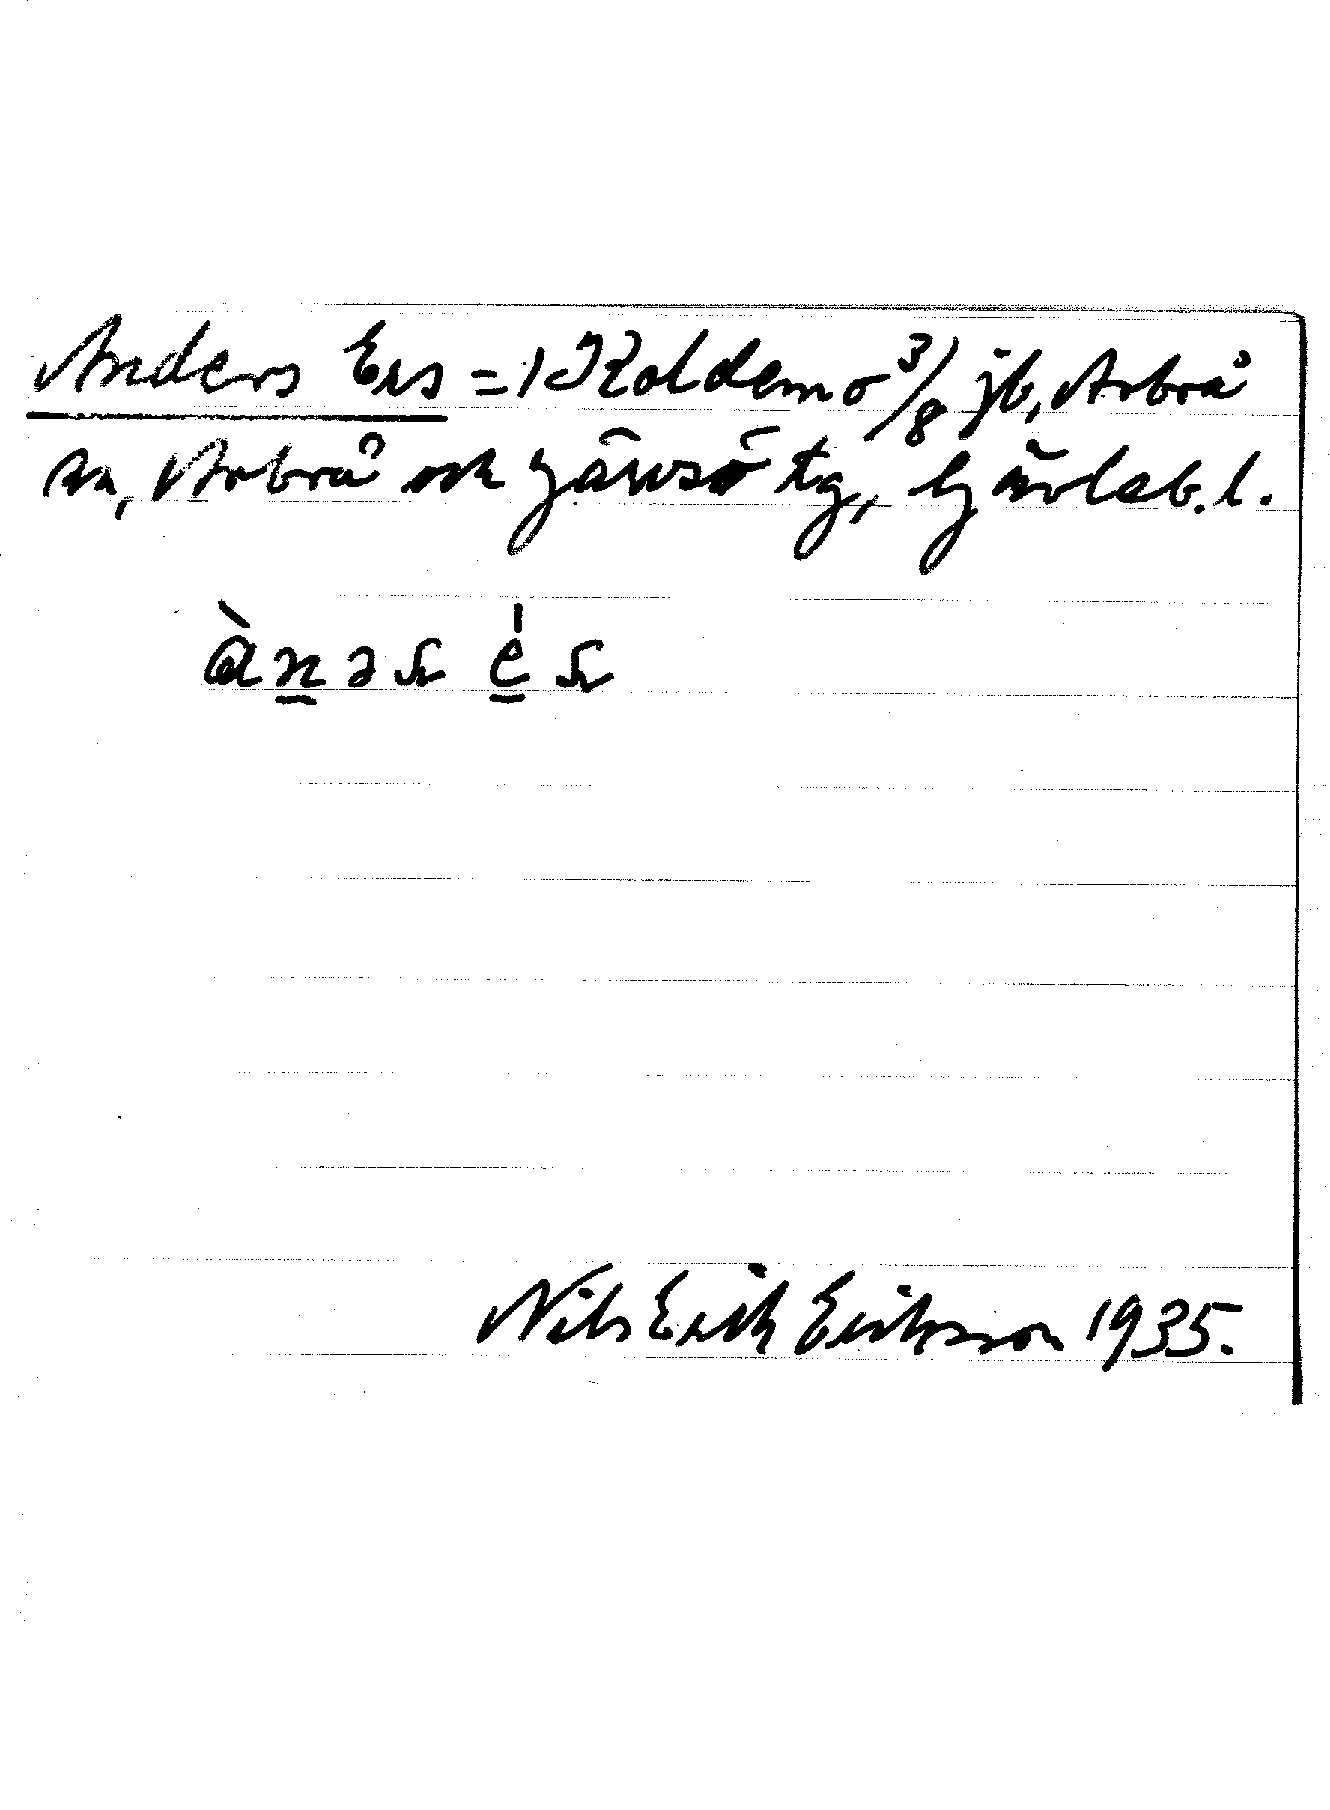 Anders Ers = 1 Koldemo 3/8 jb, Arbrå
sn, Arbrå och Järvsö tg, Gävleb. l.
ànəs és
Nils Erik Eriksson 1935.